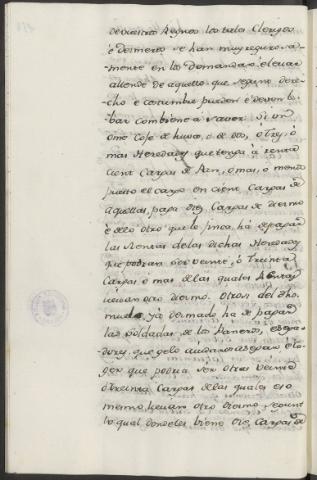 de vuestros Regnos los tales Clerigos
é desmeros se han muy regurosa
mente en los demandar, e levar
allende de aquello que segund dere
cho é costumbre pueden é deven le
bar combiene a saver Si un
ome Coje de huvas, ó de
mas Heredades que tenga á renta
cient Cargas de Pan, ó mas, ó menos
puesto el caso en cient Cargas de
aquellas, paga diez Cargas de diezmo
é de lo otro que le finca, há de pagar
las Rentas de las dichas Heredades
que podran ser veinte, ó treinta
Cargas ó mas de las quales Rentas
llevan otro diezmo. Otrosi del dho
mueble, ya dezmado há de pagar
las soldadas de los Paneros, é sega
dores, que gelo aiudaron a segar é co
ger que podria ser otras veinte
ó treinta Cargas de las quales eso
mesmo llevan otro diezmo, segunt
lo qual donde les biene diez Cargas de